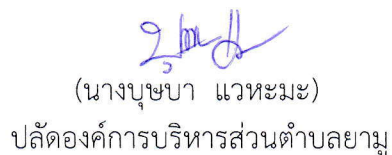 (นางบุษบา แวหะมะ)
ปลัดองค์การบริหารส่วนตำบลยามู